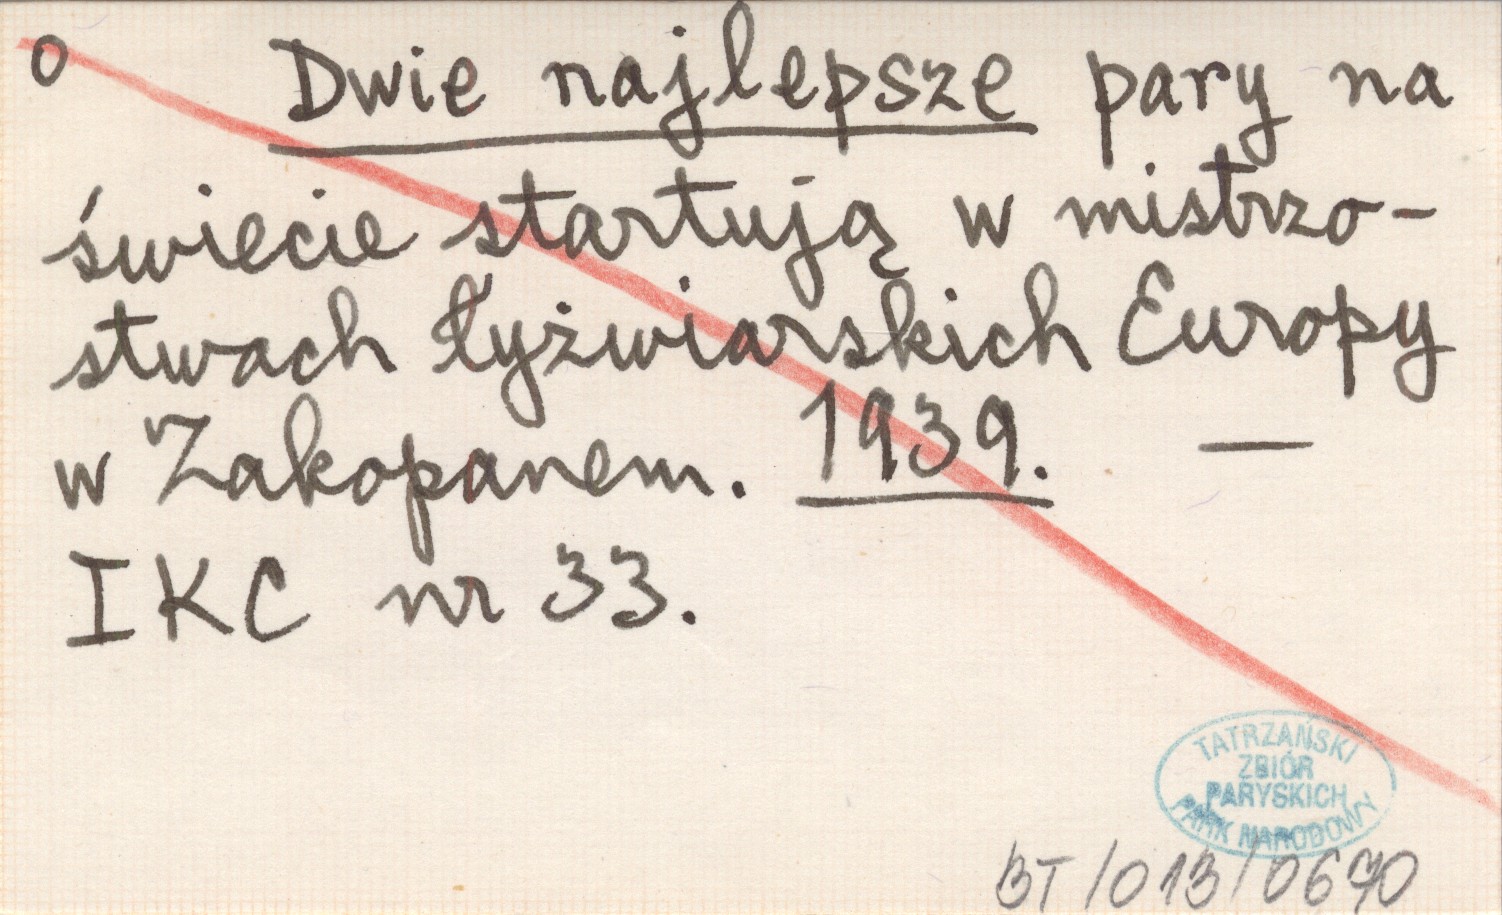 o Dwie najlepsze pary na
świecie startują w mistrzo-
stwach łyżwiarskich Europy
w Zakopanem. 1939. —
IKC nr 33.
TATRZAŃSKI
ZBIÓR
PARYSKICH
PARK NARODOWY
BT/013/0670